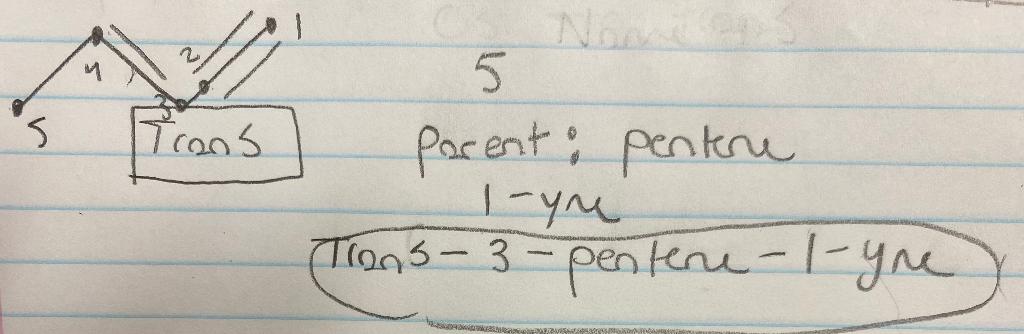 1
2
4
3
5
Trans
5
Parent: pentene
1-yne
Trans-3-pentene-1-yne